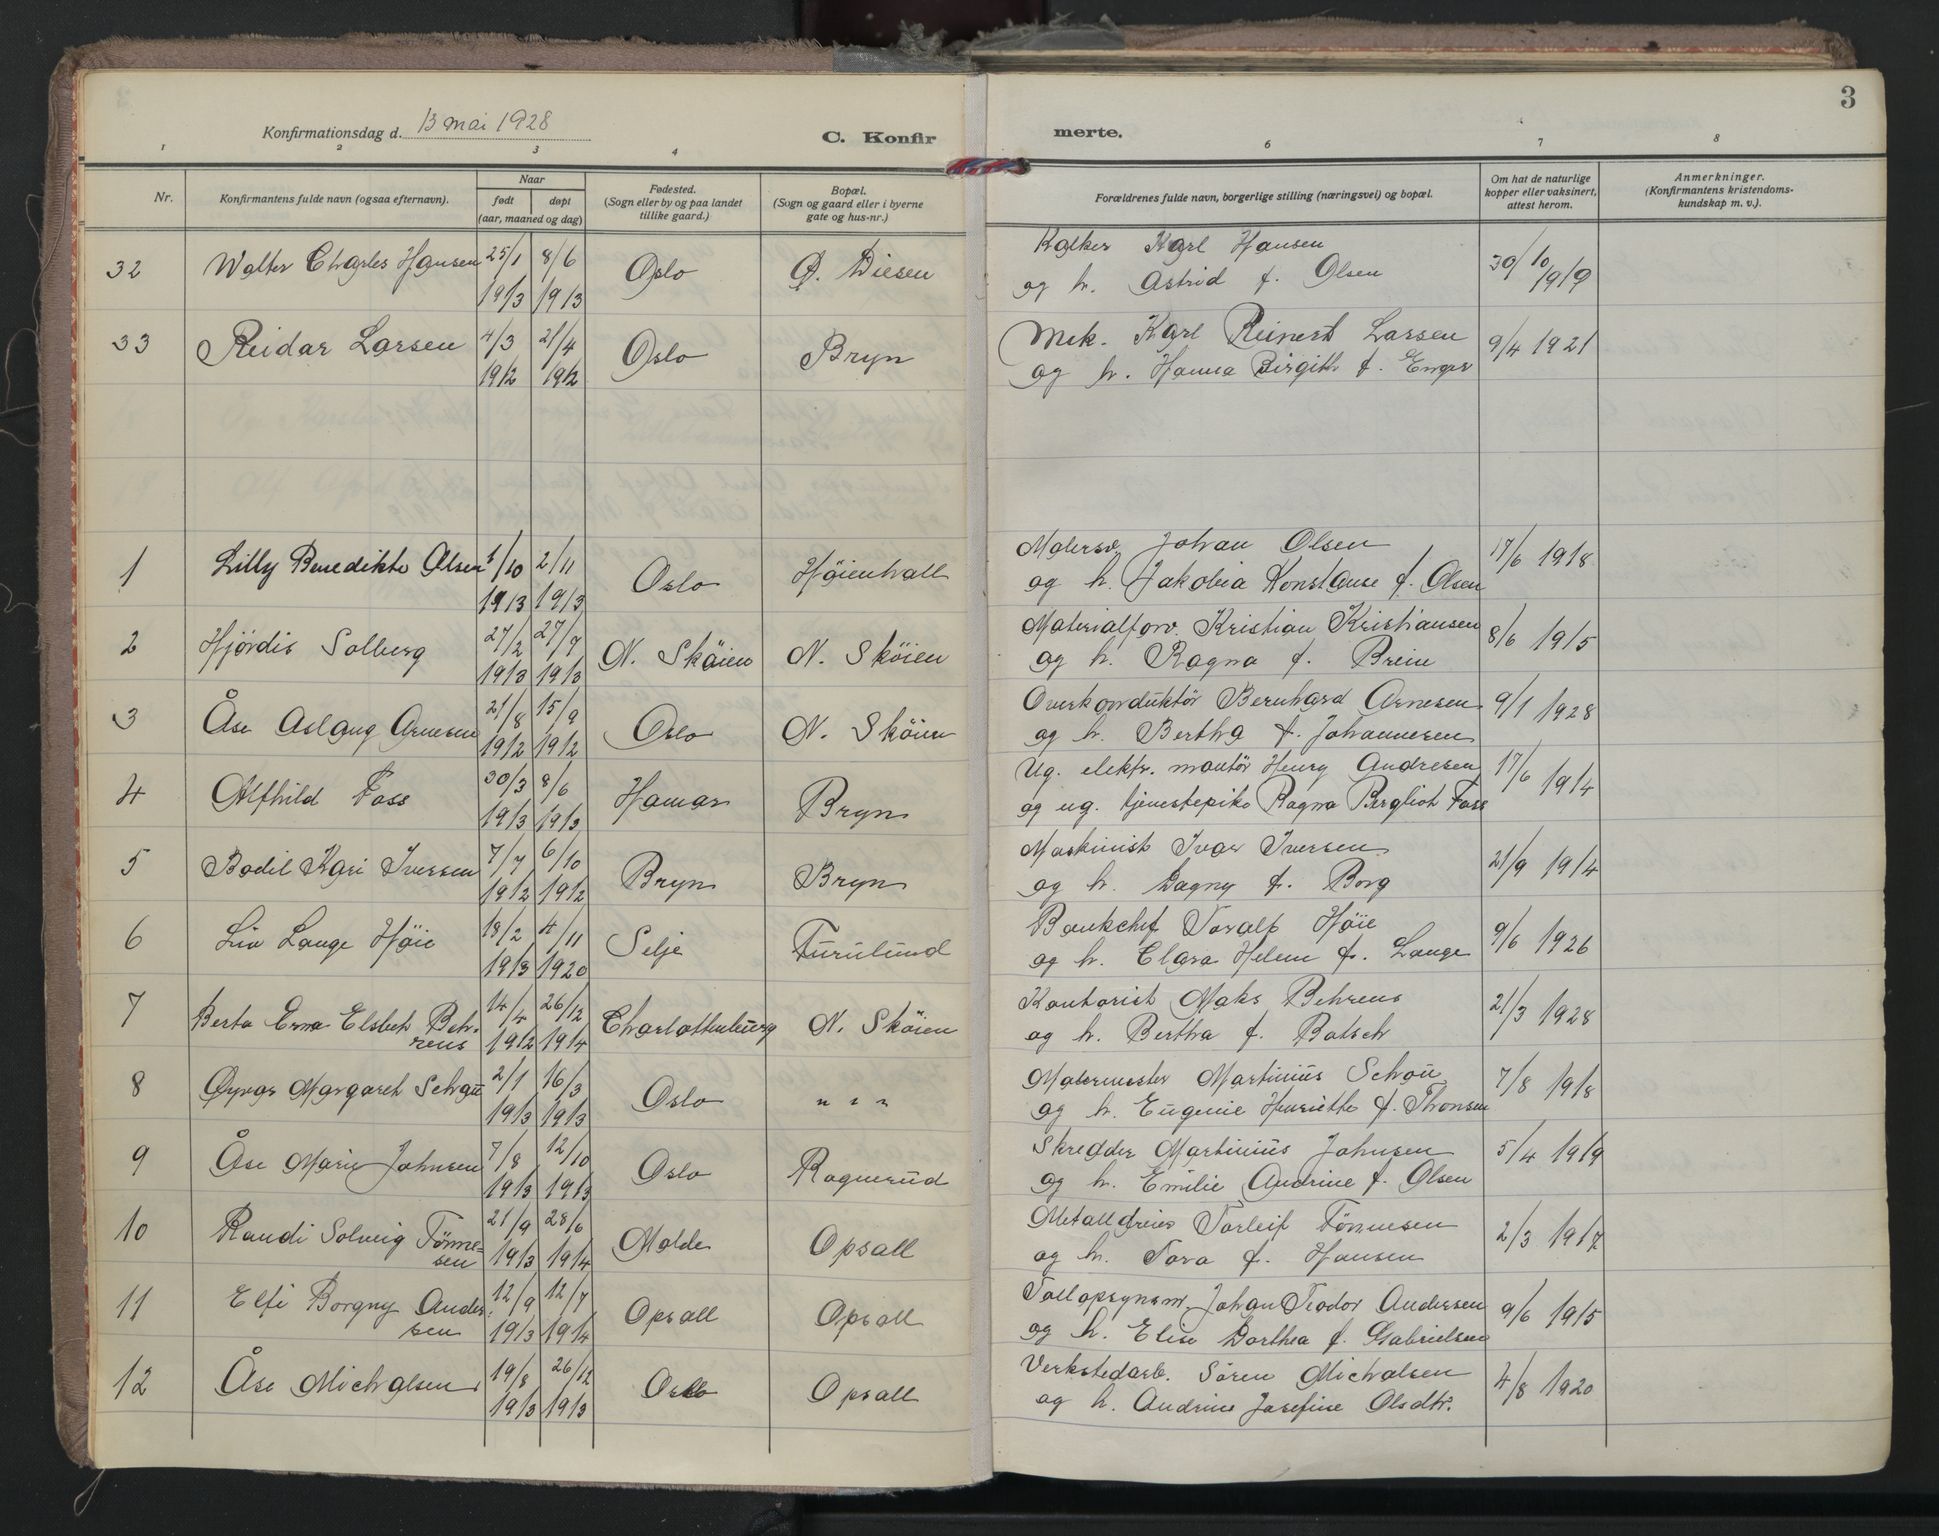 3
Konfirmationsdag d. 13 mai 1928
C. Konfir merte.
1 2 3 4 6 7 8
Nr.
Konfirmantens fulde navn (ogsaa efternavn).
Naar
født døpt
(aar, maaned og dag)
Fødested.
(Sogn eller by og paa landet
tillike gaard.)
Bopæl.
(Sogn og gaard eller i byerne
gate og hus-nr.)
Forældrenes fulde navn, borgerlige stilling (næringsvei) og bopæl.
Om hat de naturlige
kopper eller vaksinert,
attest herom.
Anmerkninger.
(Konfirmantens kristendoms-
kundskap m. v.).
32 Walter Charles Hansen 25/1 1913 8/6 1913 Oslo Ø. Diesen Kalker Karl Hansen 30/10 1919
og h. Astrid f. Olsen
33 Reidar Larsen 4/3 1912 21/4 1912 Oslo Bryn Mek. Karl Reinert Larsen 9/4 1921
og h. Hanna Birgith f. Enger
1 Lilly Benedikte Olsen 1/10 1913 2/11 1913 Oslo Høienhall Malersv. Johan Olsen 17/6 1918
og h. Jakobia Konstanse f. Olsen
2 Hjördis Solberg 27/2 1913 27/7 1913 N. Sköien N. Sköien Materialforv. Kristian Kristiansen 8/6 1915
og h. Ragna f. Brein
3 Åse Aslaug Arnesen 21/8 1912 15/9 1912 Oslo N. Sköien Overkonduktör Bernhard Arnesen 9/1 1928
og h. Bertha f. Johannesen
4 Alfhild Foss 30/3 1913 8/6 1913 Hamar Bryn Ug. elektr. montör Henry Andresen 17/6 1914
og ug. tjenestepike Ragna Bergliot Foss
5 Bodil Kari Iversen 7/7 1912 6/10 1912 Bryn Bryn Maskinist Ivar Iversen 21/9 1914
og h. Dagny f. Borg
6 Liv Lange Höie 18/2 1913 4/11 1920 Selje Furulund Bankchef Toralf Höie 9/6 1926
og h. Clara Helene f. Lange
7 Berta Erna Elsbet Beh- 14/4 1912 26/12 1914 Charlottenburg N. Sköien Kontorist Maks Behrens 21/3 1928
rens og h. Bertha f. Batsch
8 Margareth Schau 2/1 1913 16/3 1913 Oslo " " " Malermester Martinius Schau 7/8 1918
og h. Eugenie Henriette f. Thonsen
9 Åse Marie Johnsen 7/8 1913 12/10 1913 Oslo Rognerud Skredder Martinius Johnsen 5/4 1919
og h. Emilie Andrine f. Olsen
10 Randi Solveig Tönne- 21/9 1913 28/6 1914 Molde Opsall Metalldreier Torleif Tönnesen 2/3 1917
sen og h. Tora f. Hansen
11 Elfi Borgny Ander- 12/9 1913 12/7 1914 Opsall Opsall Tollopsynsm. Johan Teodor Andersen 9/6 1915
sen og h. Elise Dorthea f. Gabrielsen
12 Åse Michalsen 19/8 1913 26/12 1913 Oslo Opsall Verkstedarb. Sören Michalsen 4/8 1920
og h. Andrine Josefine Olsdtr.